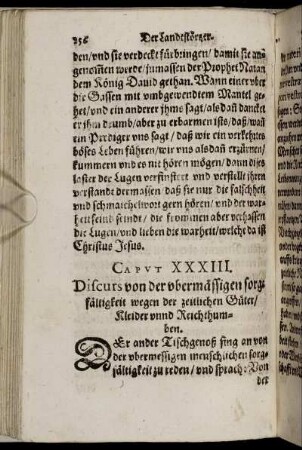 356 Der Landtstörtzer
den/ vnd sie verdeckt fürbringen/ damit sie ang
genommen werde/ inmassen der Prophet Natan
dem König Dauid gethan. Wann einer vber
die Gassen mit vmbgewendtem Mantel ge-
het/ vnd ein anderer ihms sagt/ als dañ dancket
er ihm drumb/ aber zu erbarmen ists/ daß/ wañ
ein Prediger vns sagt/ daß wir ein verkehrtes
böses Leben führen/ wir vns als dañ erzürnen/
kummern vnd es nit hören mögen/ dann diß
laster der Lugen verfinstert vnd verstellt jhren
verstandt dermassen/ daß sie nur die falschheit
vnd schmaichelwort gern hören/ vnd der war-
heit feind seindt/ die frommen aber verhassen
die Lugen/ vnd lieben die warheit/ welche da ist
Christus Jesus.
CAPVT XXXIII.
Discurs von der vbermässigen sorg-
fältigkeit wegen der zeitlichen Güter/
Kleider vnnd Reichthum-
ben.
DEr ander Tischgenoß fing an von
der vbermessigen menschlichen sorg-
fältigkeit zu reden/ vnd sprach: Von
der